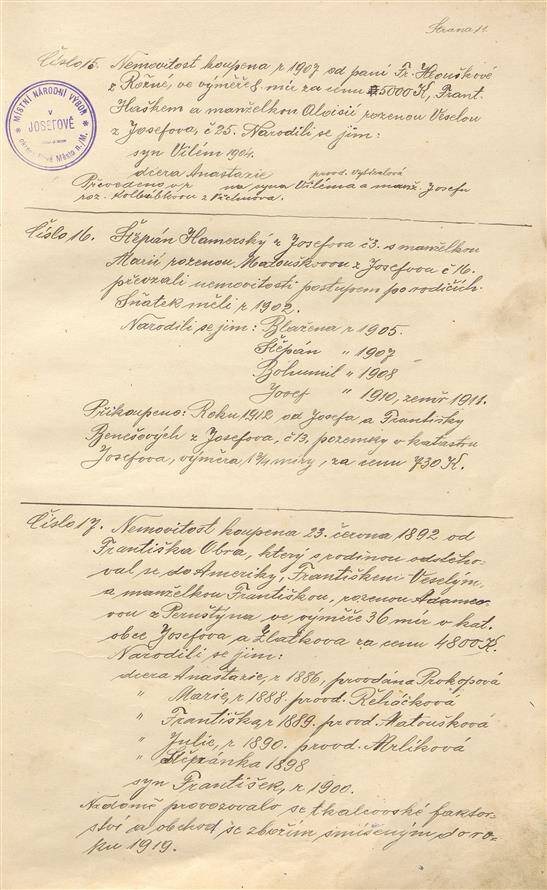 Strana 11.
Číslo 15. Nemovitost koupena r 1907 od paní Fr. Hlouškové
z Rožné, ve výměře 8 mír za cenu 5000 K, Frant.
Haškem a manželkou Aloisií rozenou Veselou
z Josefova, č 25. Narodili se jim:
syn Vilém 1904.
dcera Anastazie provd. Vybíralová
Převedeno v r na syna Viléma a manž. Josefu
roz. z Věchnova.
MÍSTNÍ NÁRODNÍ VÝBOR
v
JOSEFOVĚ
Nové Město n/M.
Číslo 16. Štěpán Hamerský z Josefova č 3. s manželkou
Marií rozenou Matouškovou z Josefova č 16.
převzali nemovitosti postupem po rodičích.
Sňatek měli r 1902.
Narodili se jim: Blažena r 1905.
Štěpán " 1907
Bohumil " 1908
Josef " 1910, zemř 1911.
Přikoupeno: Roku 1912 od Josefa a Františky
Benešových z Josefova, č 13. pozemky v katastru
Josefova, výměra 1¾ míry, za cenu 730 K.
Číslo 17. Nemovitost koupena 23. června 1892 od
Františka Obra, který s rodinou odstěho-
val se do Ameriky, Františkem Veselým,
a manželkou Františkou, rozenou Adamco-
vou z Pernštýna ve výměře 36 mír v kat.
obce Josefova a Zlatkova za cenu 4800 K.
Narodili se jim:
dcera Anastazie, r 1886, provdána Prokopová
" Marie, r 1888. provd. Řeháčková
" Františka, r 1889. provd. Matoušková
" Julie, r 1890. provd. Mrlíková
" Štěpánka 1898
syn František, r 1900.
Na domě provozovalo se tkalcovské faktor-
ství a obchod se zbožím smíšeným do ro-
ku 1919.